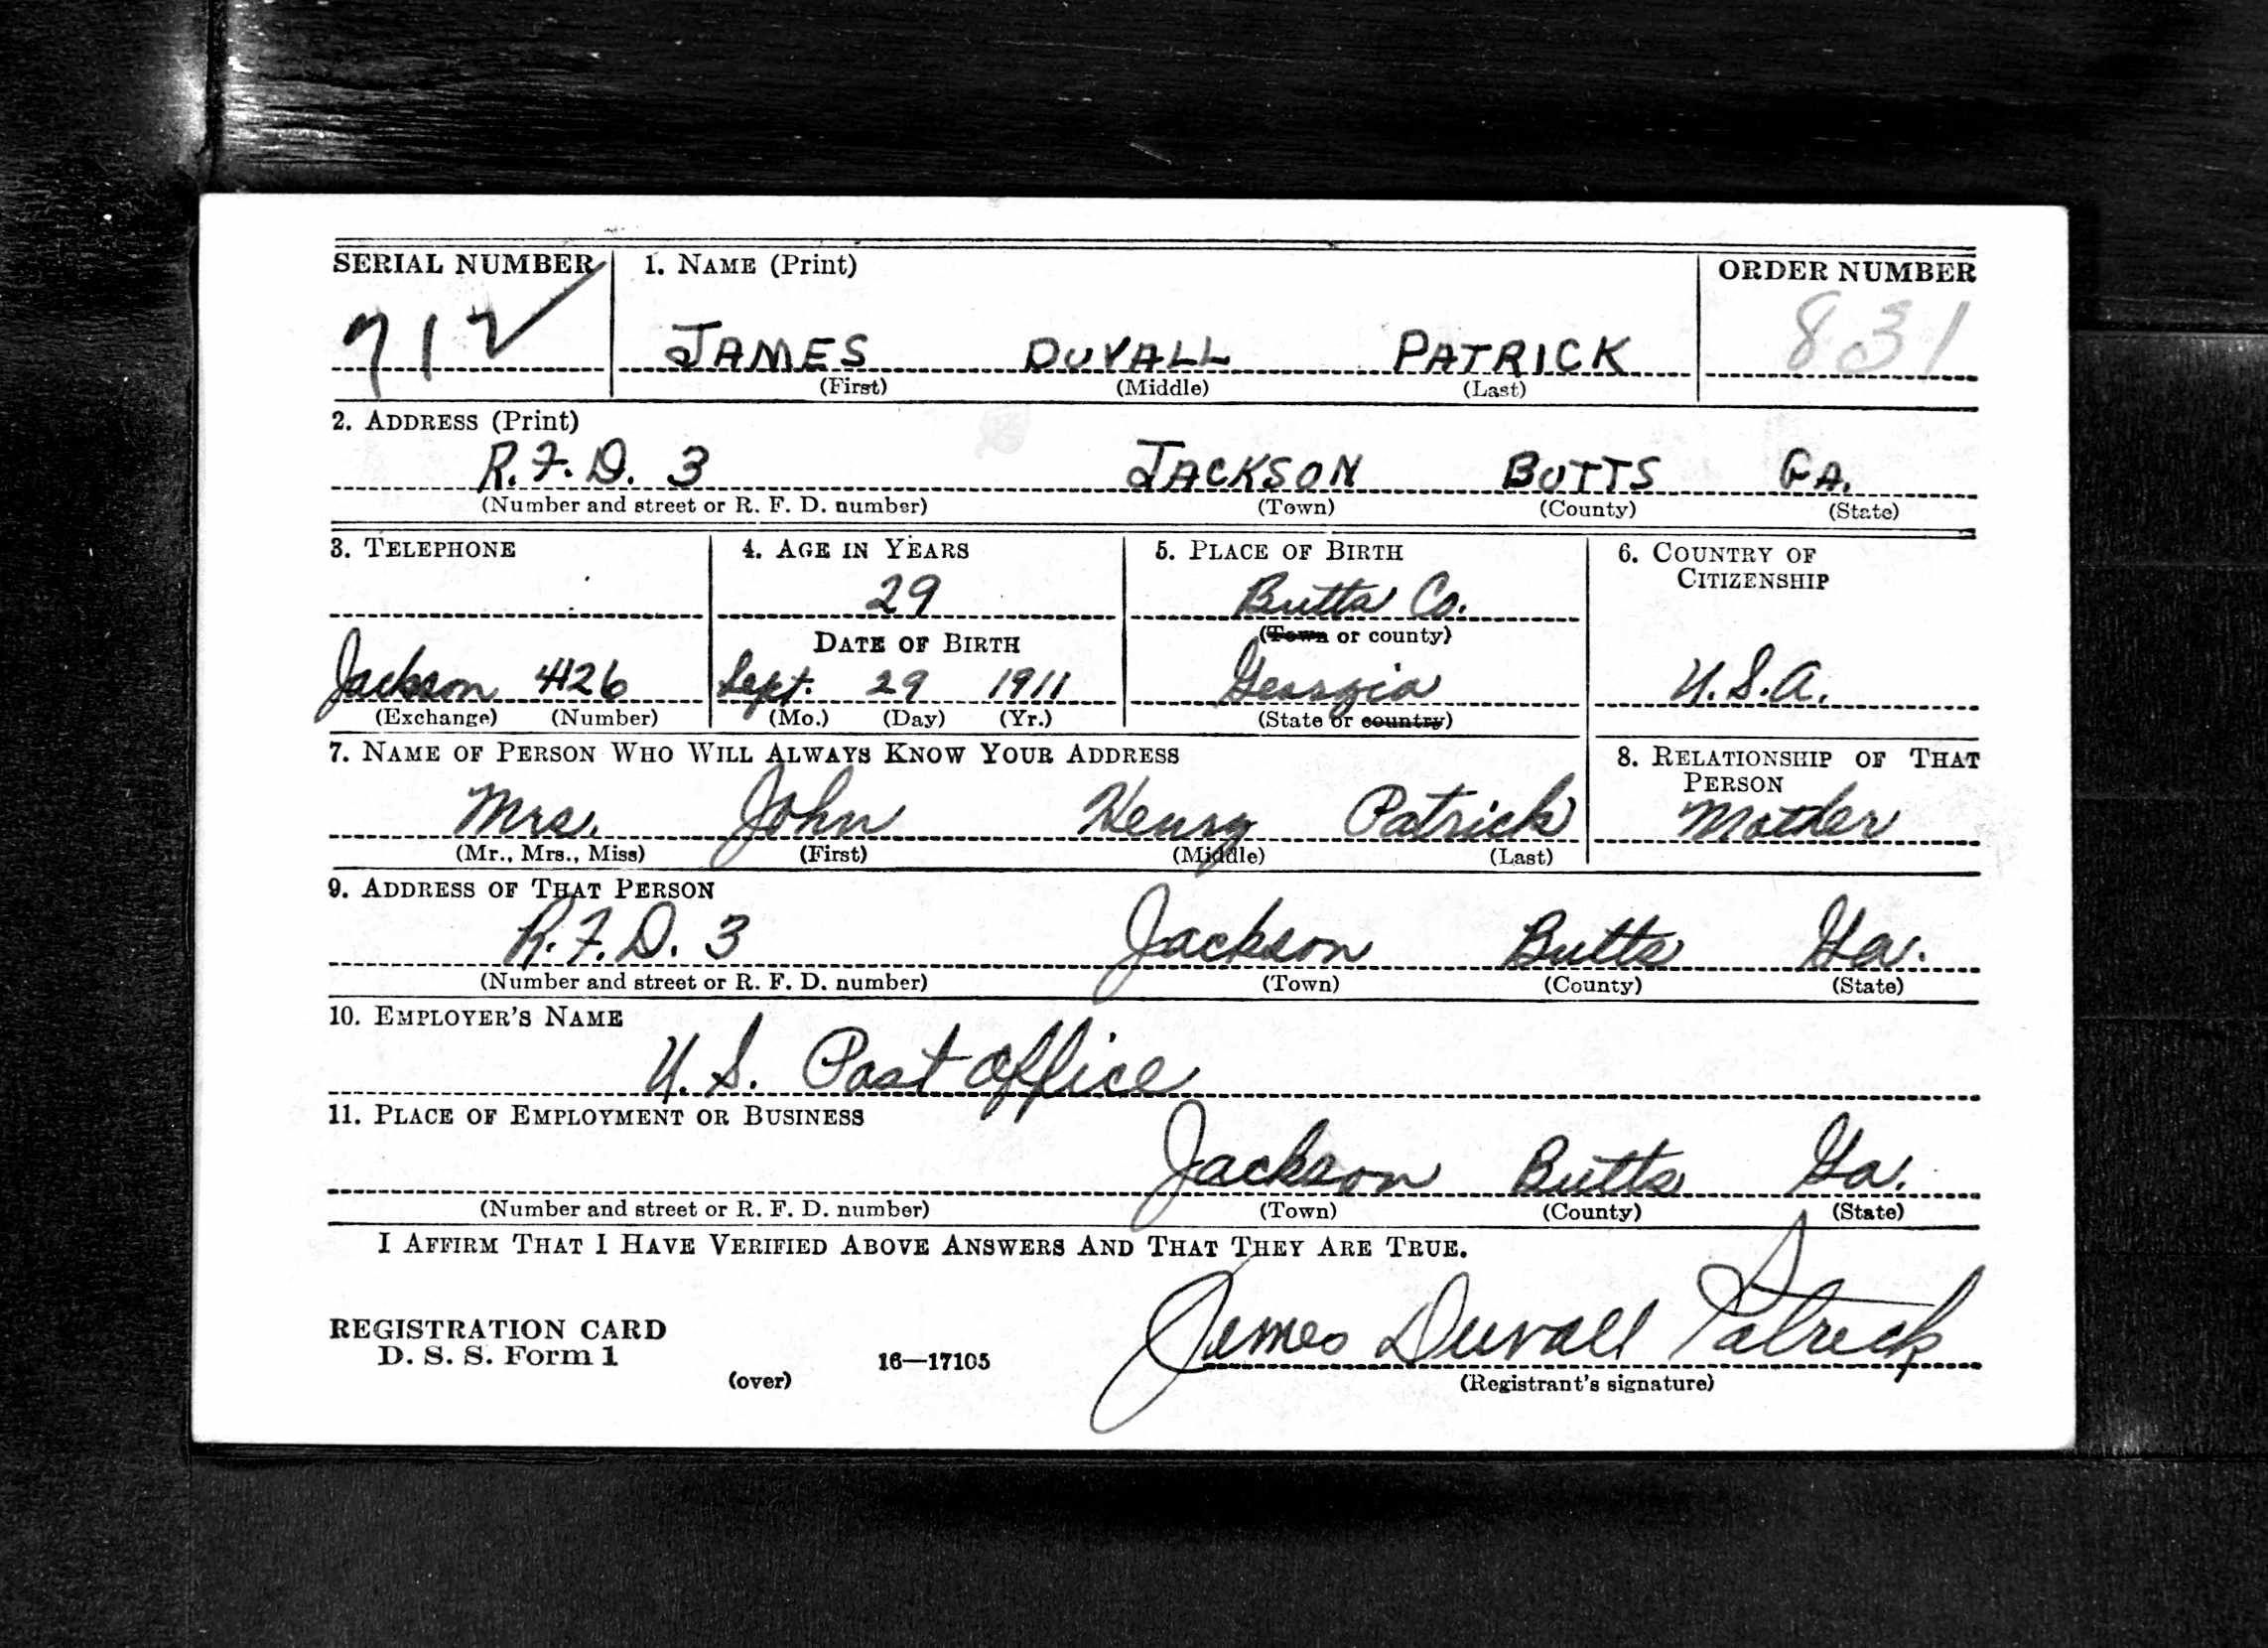 SERIAL NUMBER 1. NAME (Print) ORDER NUMBER
712 JAMES DUVALL PATRICK 831
(First) (Middle) (Last)
2. ADDRESS (Print)
R.F.D. 3 JACKSON BUTTS GA.
(Number and street or R. F. D. number) (Town) (County) (State)
3. TELEPHONE 4. AGE IN YEARS 5. PLACE OF BIRTH 6. COUNTRY OF
CITIZENSHIP
29 Butts Co.
DATE OF BIRTH (Town or county)
Jackson 426 Sept. 29 1911 Georgia U.S.A.
(Exchange) (Number) (Mo.) (Day) (Yr.) (State or country)
7. NAME OF PERSON WHO WILL ALWAYS KNOW YOUR ADDRESS 8. RELATIONSHIP OF THAT
PERSON
Mrs. John Henry Patrick Mother
(Mr., Mrs., Miss) (First) (Middle) (Last)
9. ADDRESS OF THAT PERSON
R.F.D. 3 Jackson Butts Ga.
(Number and street or R. F. D. number) (Town) (County) (State)
10. EMPLOYER'S NAME
U. S. Post office
11. PLACE OF EMPLOYMENT OR BUSINESS
Jackson Butts Ga.
(Number and street or R. F. D. number) (Town) (County) (State)
I AFFIRM THAT I HAVE VERIFIED ABOVE ANSWERS AND THAT THEY ARE TRUE.
REGISTRATION CARD James Duvall Patrick
D. S. S. Form 1 16—17105
(over) (Registrant's signature)